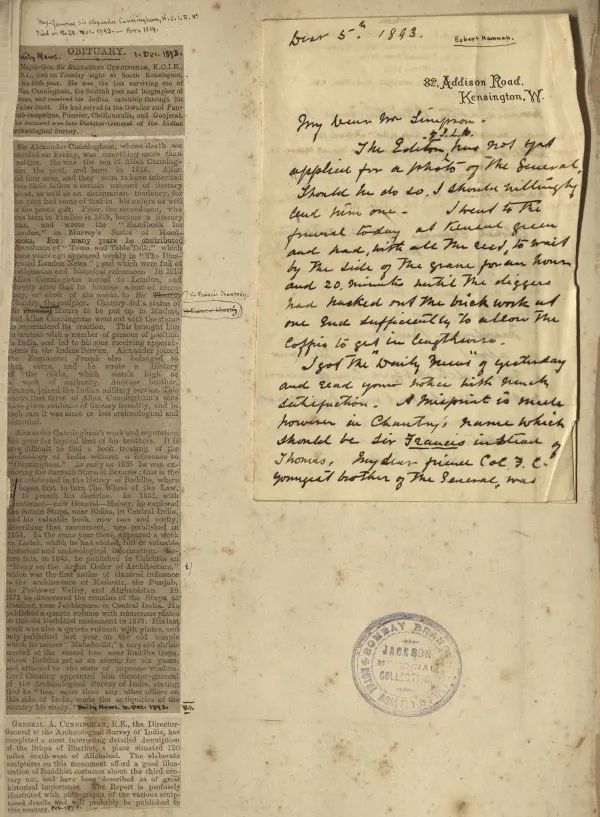 Maj-General Sir Alexander Cunningham, K.C.I.E.
Died on the 28 Nov. 1893. — Born 1814.
Daily News. 1. Dec. 1893.
OBITUARY.
Major-Gen. Sir ALEXANDER CUNNINGHAM, K.C.I.E.,
C.S.I., died on Tuesday night at South Kensington,
in his 80th year. He was the last surviving son of
Allan Cunningham, the Scottish poet and biographer of
Burns, and received his Indian cadetship through Sir
Walter Scott. He had served in the Gwalior and Pun-
jaub campaigns, Punniar, Chillianvalla, and Goojerat.
He was Director-General of the Indian
Archæological Survey.
Sir Alexander Cunningham, whose death we
recorded on Friday, was something more than
a soldier. He was the son of Allan Cunning-
ham the poet, and born in 1814. Allan
had four sons, and they seem to have inherited
from their father a certain amount of literary
talent, as well as an antiquarian tendency, for
the poet had some of that in his nature as well
as the poetic gift. Peter, the second son, who
was born in Pimlico in 1816, became a literary
man, and wrote the "Handbook for
London," in Murray's Series of Hand-
books. For many years he contributed
a column of "Town and Table Talk," which
some years ago appeared weekly in "The Illus-
trated London News"; and which were full of
antiquarian and historical references. In 1810
Allan Cunningham moved to London, and
shortly after that he became a sort of secre-
tary, or clerk of the works, to Sir
Chantry, the sculptor. Chantry did a statue of
Sir Francis Chantrey.
to be put up in Madras,
and Allan Cunningham went out with the statue
to superintend its erection. This brought him
in contact with a number of persons of position
in India, and led to his sons receiving appoint-
ments in the Indian Service. Alexander joined
the Engineers; Joseph also belonged to
that corps, and he wrote a History
of the Sikhs, which stands high as
a work of authority. Another brother,
Francis, joined the Indian military service. This
shows that three of Allan Cunningham's sons
have given evidence of literary heredity, and in
each case it was more or less archæological and
historical.
Alexander Cunningham's work and reputation
has gone far beyond that of his brothers. It is
now difficult to find a book treating of the
archæology of India without a reference to
"Cunningham." As early as 1835 he was ex-
ploring the Sarnath Stupa at Benares; this is the
spot celebrated in the history of Buddha, where
he began first to turn The Wheel of the Law,
or to preach his doctrine. In 1851, with
Lieutenant—now General—Maisey, he explored
the Sanchi Stupa, near Bhilsa, in Central India,
and his valuable book, now rare and costly,
describing that monument, was published in
1854. In the same year there appeared a work
on Ladak, which he had visited, full of valuable
historical and archæological information. Be-
fore this, in 1848, he published in Calcutta an
"Essay on the Arian Order of Architecture,"
which was the first notice of classical influence
in the architecture of Kashmir, the Punjab,
the Peshawer Valley, and Afghanistan. In
1874 he discovered the remains of the Stupa at
Bharhut, near Jubblepore, in Central India. He
published a quarto volume with numerous plates
on this old Buddhist monument in 1879. His last
work was also a quarto volume, with plates, and
only published last year, on the old temple
which he names "Mahabodhi," a very old shrine
erected at the sacred tree near Buddha Gaya,
where Buddha sat as an ascetic for six years,
and attained to the state of supreme wisdom.
Lord Canning appointed him director-general
of the Archæological Survey of India, stating
that he "has, more than any other officer on
this side of India, made the antiquities of the
country his study."
Daily News. 4. Dec. 1893.
GENERAL A. CUNNINGHAM, R.E., the Director-
General of the Archæological Survey of India, has
completed a most interesting detailed description
of the Stûpa of Bharhut, a place situated 120
miles south-west of Allahabad. The elaborate
sculptures on this monument afford a good illus-
tration of Buddhist costumes about the third cen-
tury B.C., and have been described as of great
historical importance. The Report is profusely
illustrated with photographs of the various sculp-
tured details, and will probably be published in
this country. Feb. 1878.
Decr 5.th 1893.
Robert Hannah.
32, Addison Road,
Kensington, W.
My Dear Mr Simpson.
of I.L.N.
The Editor has not yet
applied for a photo of the General,
Should he do so, I should willingly
lend him one. I went to the
funeral today at Kensal green
and had, with all the rest, to wait
by the side of the grave for an hour
and 20 minutes until the diggers
had hacked out the brickwork at
one End sufficiently to allow the
Coffin to get in lengthwise.
I got the "Daily News" of yesterday
and read your notice with much
satisfaction. A misprint is made
however in Chantry's name which
should be Sir Francis instead of
Thomas. My dear friend Col. F. C.
youngest brother of the General, was
BOMBAY BRANCH
ROYAL ASIATIC SOCIETY
JACKSON
COLLECTION